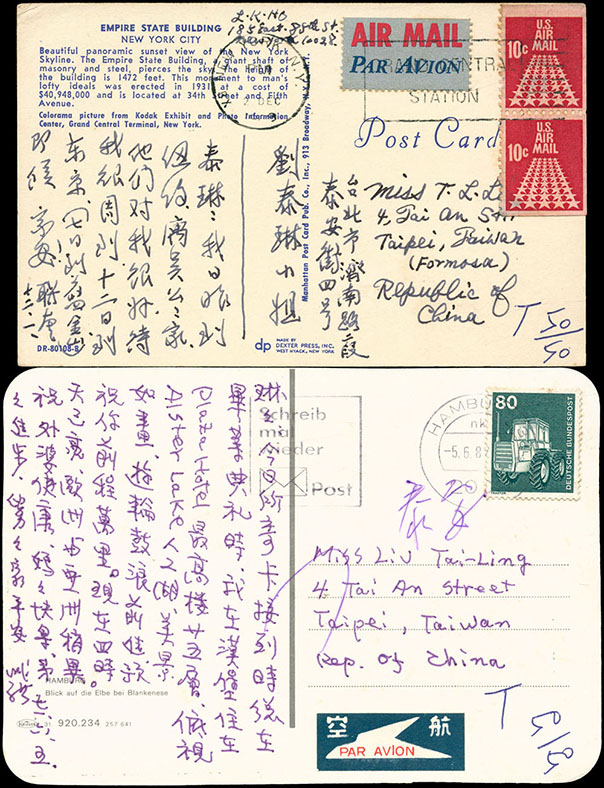 EMPIRE STATE BUILDING
NEW YORK CITY
Beautiful panoramic sunset view of the New York
Skyline. The Empire State Building, a giant shaft of
masonry and steel, pierces the sky. The height of
the building is 1472 feet. This monument to man's
lofty ideals was erected in 1931 at a cost of
$40,948,000 and is located at 34th Street and Fifth
Avenue.
Colorama picture from Kodak Exhibit and Photo Information
Center, Grand Central Terminal, New York.
L.K. Ho
185 East 85th St.
New York 10028
AIR MAIL
PAR AVION
CENTRAL
STATION
U.S.
AIR MAIL
10c
U.S.
AIR MAIL
10c
Post Card
Miss T. L. Li
4, Tai An St.
Taipei, Taiwan
(Formosa)
Republic of
China
T 50/50
台北市濟南路二段
泰安街四号
劉泰琳小姐
泰琳：我日昨到
紐約，寓吳公公家
他們对我很好，待
我很周到，十二日到
東京，
即候
Manhattan Post Card Pub. Co., Inc., 913 Broadway, N.Y.
DR-80108-B
dp
MADE BY
DEXTER PRESS, INC.
WEST NYACK, NEW YORK
琳今日所寄卡接到時總在
畢業典礼時，我在漢堡住在
Plaza Hotel 最高楼廿五層，低視
Alster Lake 人工湖，美景
如畫，游輪鼓浪前進，预
祝你前程萬里。現在四時
天已亮，歐洲与亞洲稍異
祝外婆健康，媽
Schreib
mal
wieder
Post
HAMBURG
-5.6.8
80
DEUTSCHE BUNDESPOST
Miss Liu Tai-Ling
4, Tai An Street
Taipei, Taiwan
Rep. of China
T
HAMBURG
Blick auf die Elbe bei Blankenese
31 920.234 257 641
空 航
PAR AVION